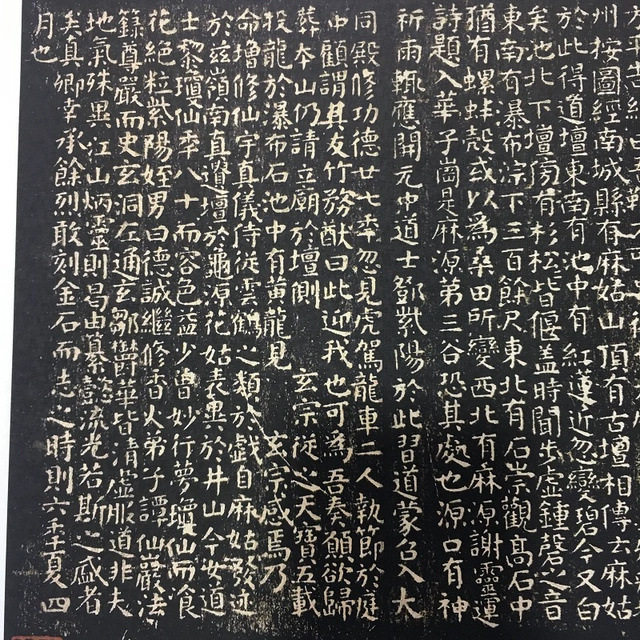 州按圖經南城縣有麻姑山頂有古壇相傳云麻姑
於此得道壇東南有池中有紅蓮近忽變碧今又白
矣池北下壇傍有杉松皆偃蓋時聞步虛鍾磬之音
東南有瀑布淙下三百餘尺東北有石崇觀高石中
猶有螺蚌殼或以為桑田所變西北有麻源謝靈運
詩題入華子崗是麻源第三谷恐其處也源口有神
祈雨輒應開元中道士鄧紫陽於此習道蒙召入大
同殿修功德廿七年忽見虎駕龍車二人執節於庭
中顧謂其友竹務猷曰此迎我也可為吾奏願欲歸
葬本山仍請立廟於壇側 玄宗從之天寶五載
投龍於瀑布石池中有黃龍見 玄宗感焉乃
命增修仙宇真儀侍從雲鶴之類於戲自麻姑發迹
於茲嶺南真遺壇於龜源花姑表異於井山今女道
士黎瓊仙年八十而容色益少曾妙行夢瓊仙而餐
花絕粒紫陽姪男曰德誠繼修香火弟子譚仙巖法
籙尊嚴而史玄洞左通玄鄒鬱華皆清虛服道非夫
地氣殊異江山炳靈則曷由纂懿流光若斯之盛者
矣真卿幸承餘烈敢刻金石而志之時則六年夏四
月也